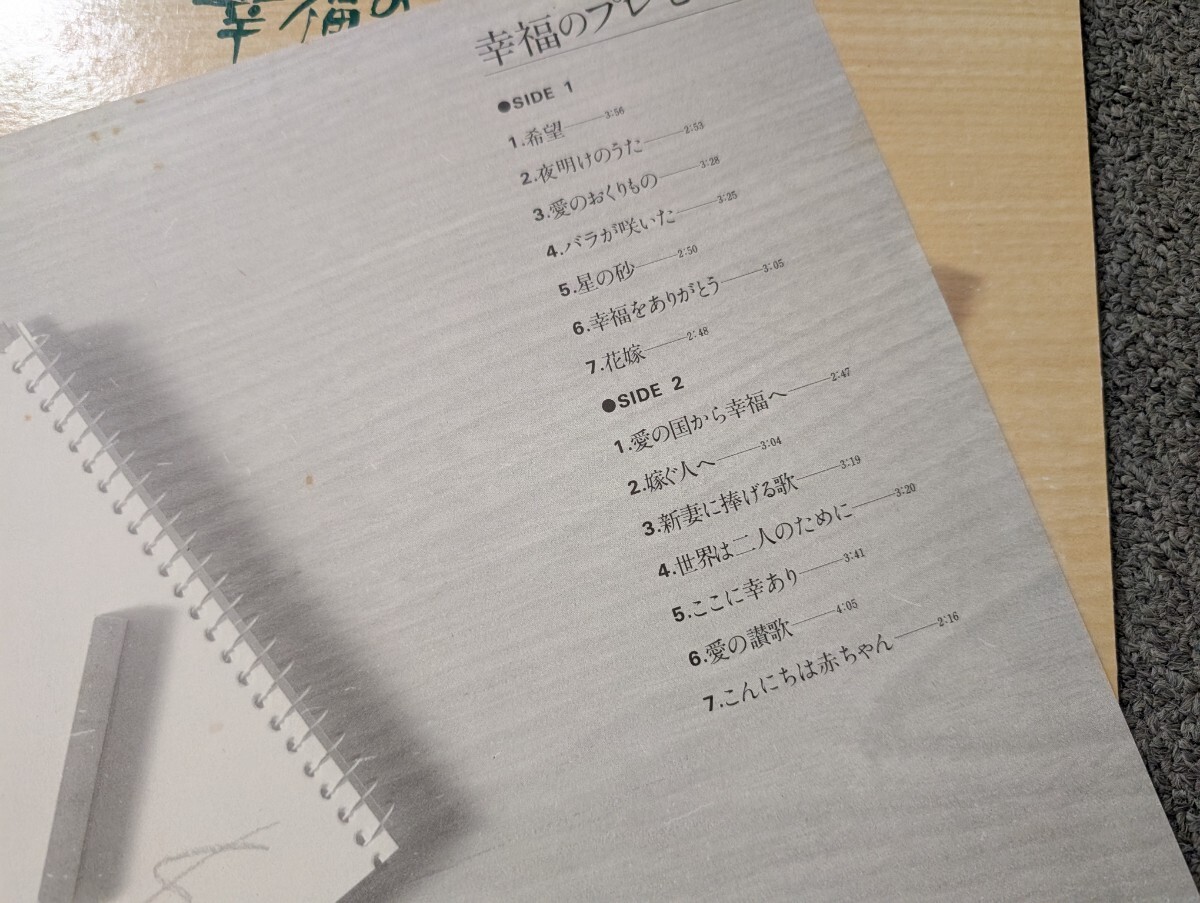 幸福の
幸福のプレゼ
●SIDE 1
1.希望――3:56
2.夜明けのうた――2:53
3.愛のおくりもの――3:28
4.バラが咲いた――3:25
5.星の砂――2:50
6.幸福をありがとう――3:05
7.花嫁――2:48
●SIDE 2
1.愛の国から幸福へ――2:47
2.嫁ぐ人へ――3:04
3.新妻に捧げる歌――3:19
4.世界は二人のために――3:20
5.ここに幸あり――3:41
6.愛の讃歌――4:05
7.こんにちは赤ちゃん――2:16